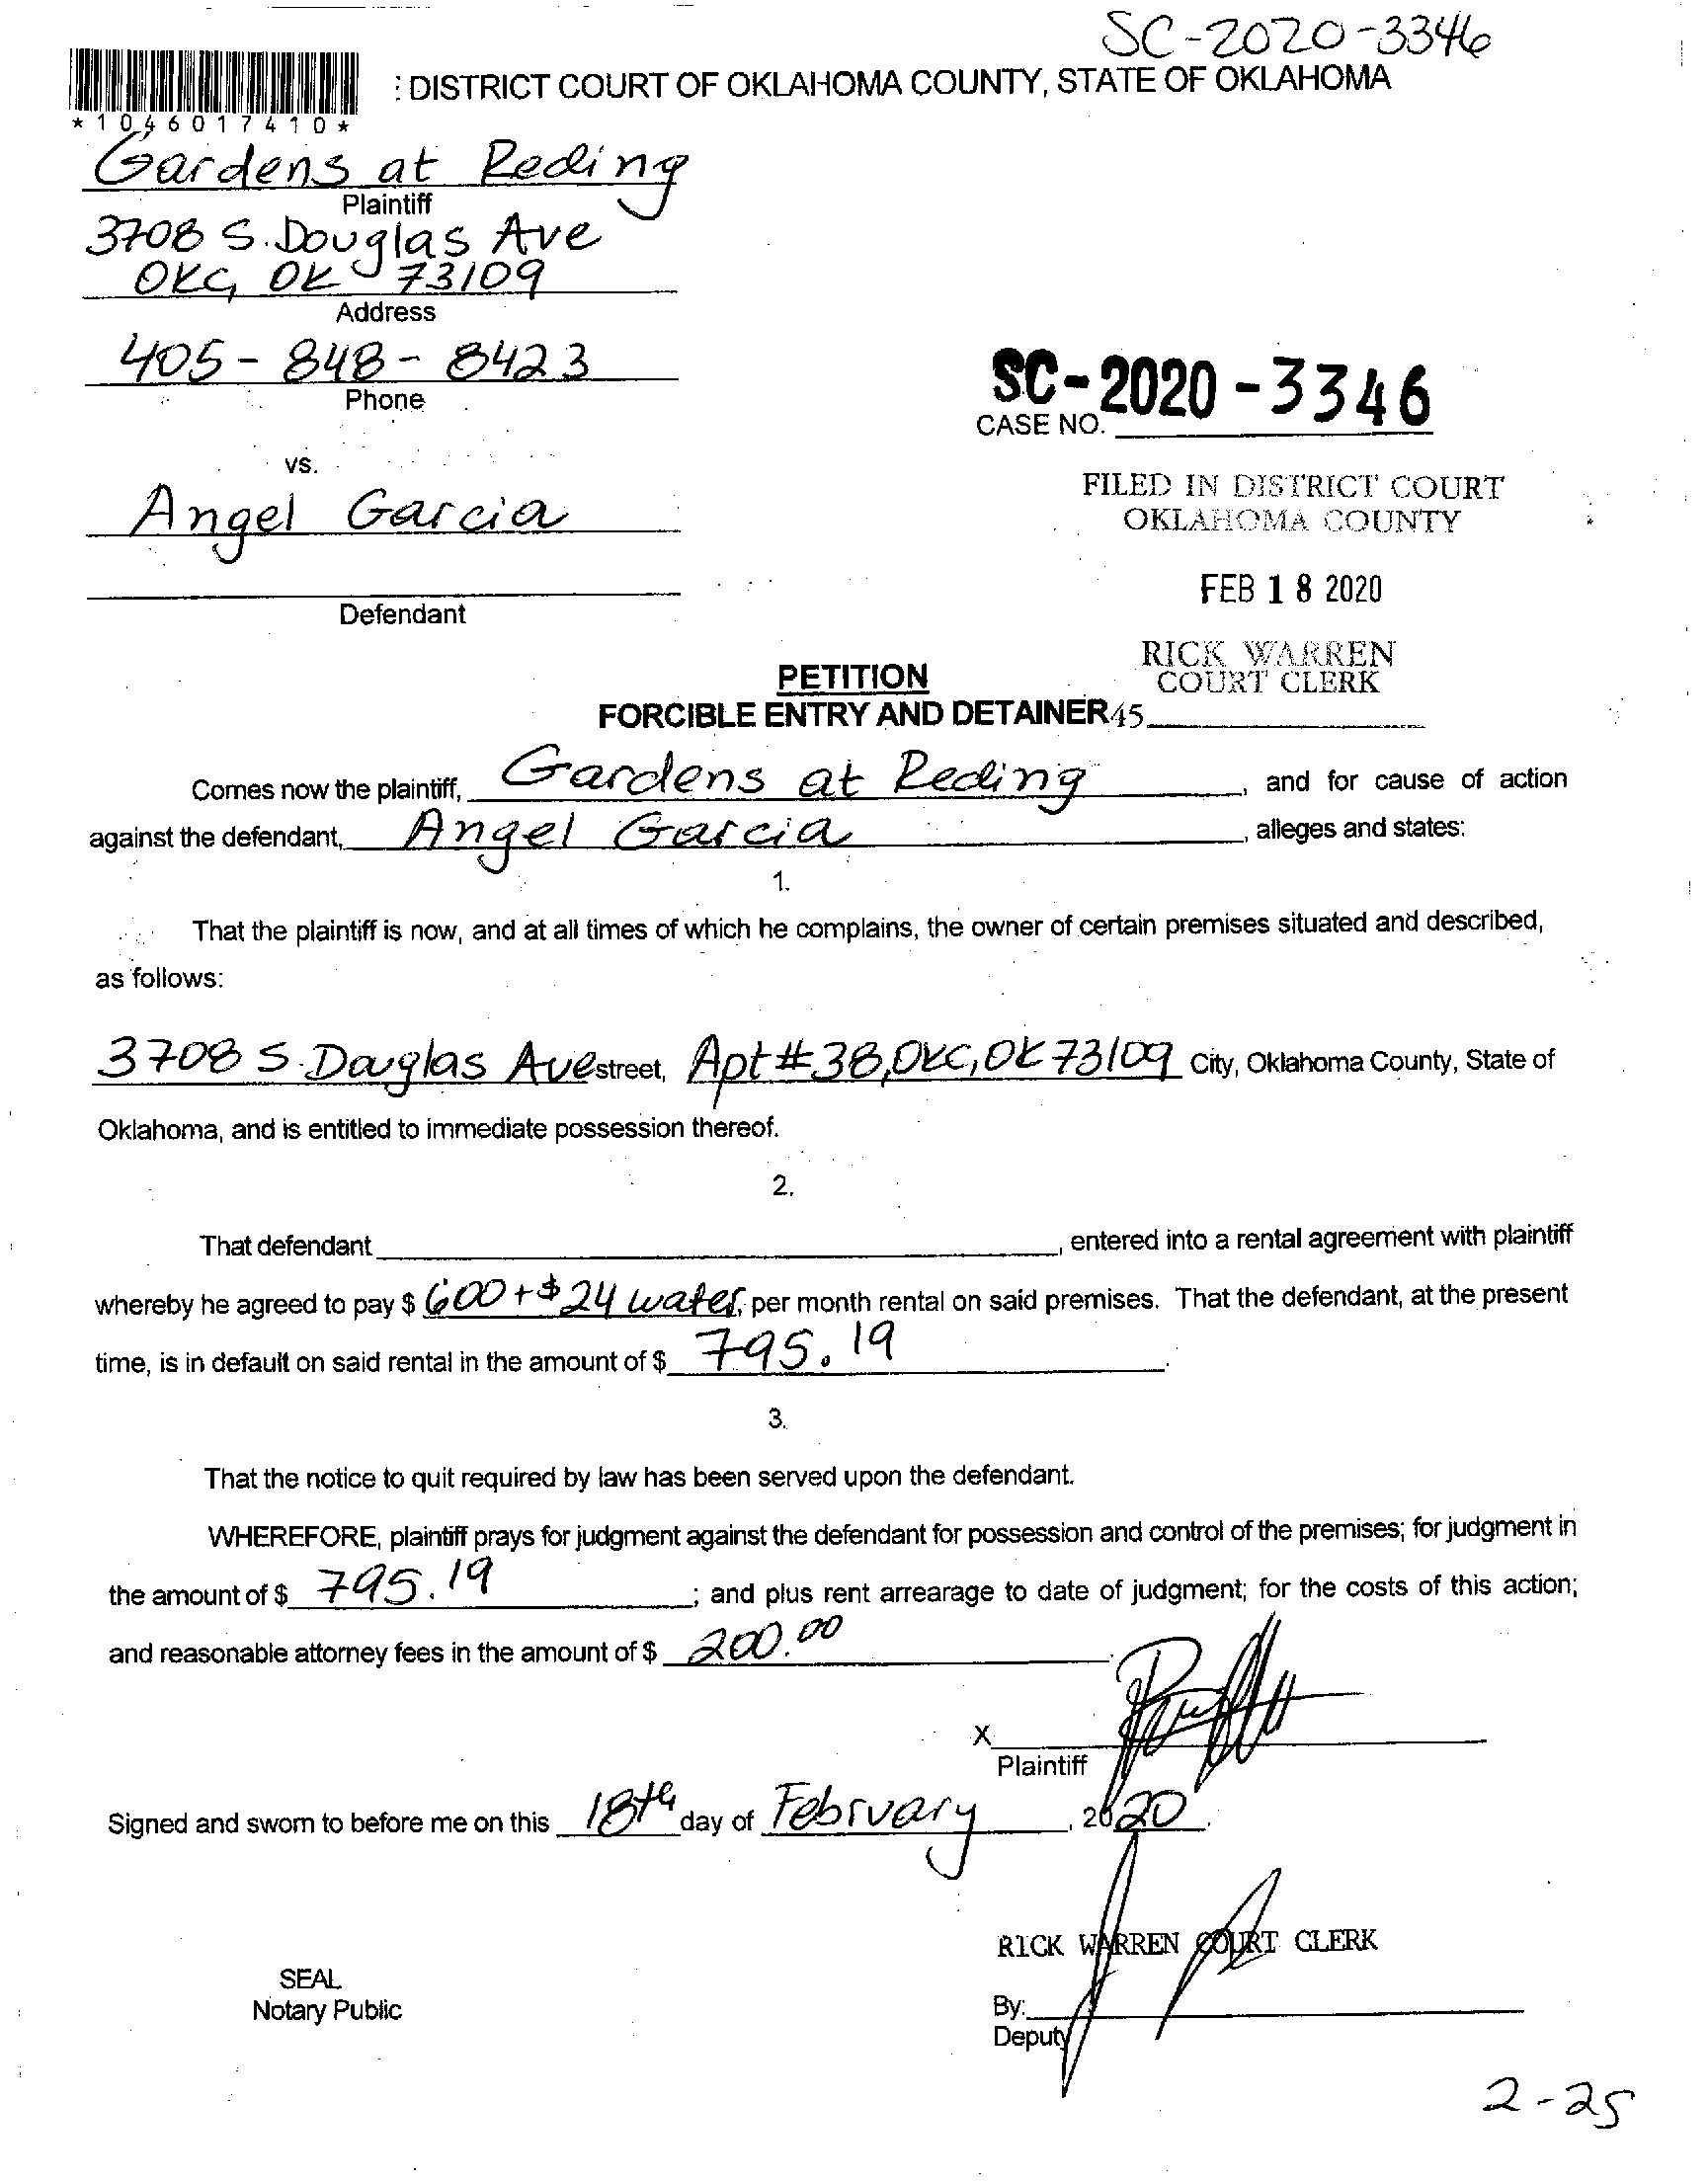 SC-2020-3346
: DISTRICT COURT OF OKLAHOMA COUNTY, STATE OF OKLAHOMA
* 1 0 4 6 0 1 7 4 1 0 *
Gardens at Reding
Plaintiff
3708 S. Douglas Ave
OKC, OK 73109
Address
405-848-8423
Phone
SC-2020-3346
CASE NO.
vs.
Angel Garcia
Defendant
FILED IN DISTRICT COURT
OKLAHOMA COUNTY
FEB 18 2020
RICK WARREN
COURT CLERK
45
PETITION
FORCIBLE ENTRY AND DETAINER
Comes now the plaintiff, Gardens at Reding, and for cause of action
against the defendant, Angel Garcia, alleges and states:
1.
That the plaintiff is now, and at all times of which he complains, the owner of certain premises situated and described,
as follows:
3708 S. Douglas Ave street, Apt #38, OKC, OK 73109 City, Oklahoma County, State of
Oklahoma, and is entitled to immediate possession thereof.
2.
That defendant , entered into a rental agreement with plaintiff
whereby he agreed to pay $ 600+$24 water, per month rental on said premises. That the defendant, at the present
time, is in default on said rental in the amount of $ 795.19.
3.
That the notice to quit required by law has been served upon the defendant.
WHEREFORE, plaintiff prays for judgment against the defendant for possession and control of the premises; for judgment in
the amount of $ 795.19; and plus rent arrearage to date of judgment; for the costs of this action;
and reasonable attorney fees in the amount of $ 200.00.
X
Plaintiff
Signed and sworn to before me on this 18th day of February, 2020.
RICK WARREN COURT CLERK
SEAL
Notary Public
By:
Deputy
2-25